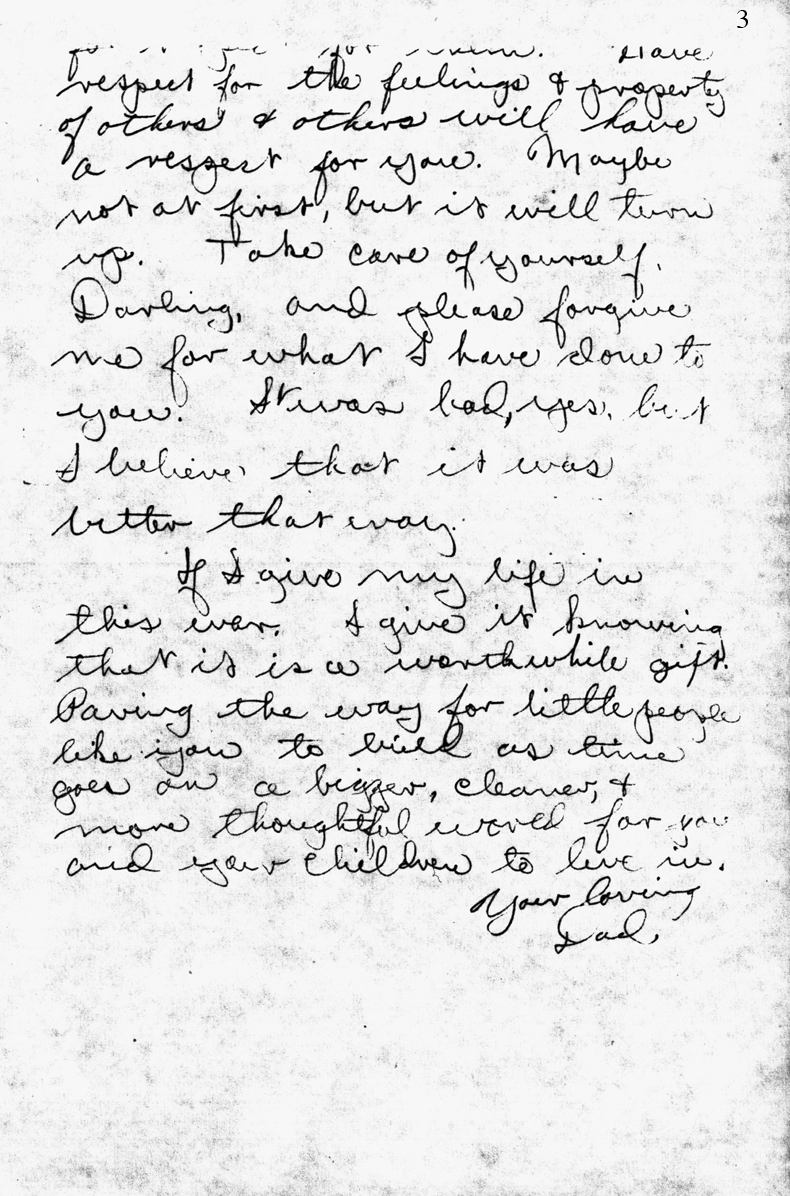 3
for them. Have
respect for the feelings & property
of others & others will have
a respect for you. Maybe
not at first, but it will turn
up. Take care of yourself,
Darling, and please forgive
me for what I have done to
you. It was bad, yes, but
I believe, that it was
better that way.
If I give my life in
this war. I give it knowing
that it is a worthwhile gift.
Paving the way for little people
like you to build as time
goes on a bigger, cleaner, &
more thoughtful world for you
and your children to live in.
Your loving
Dad,